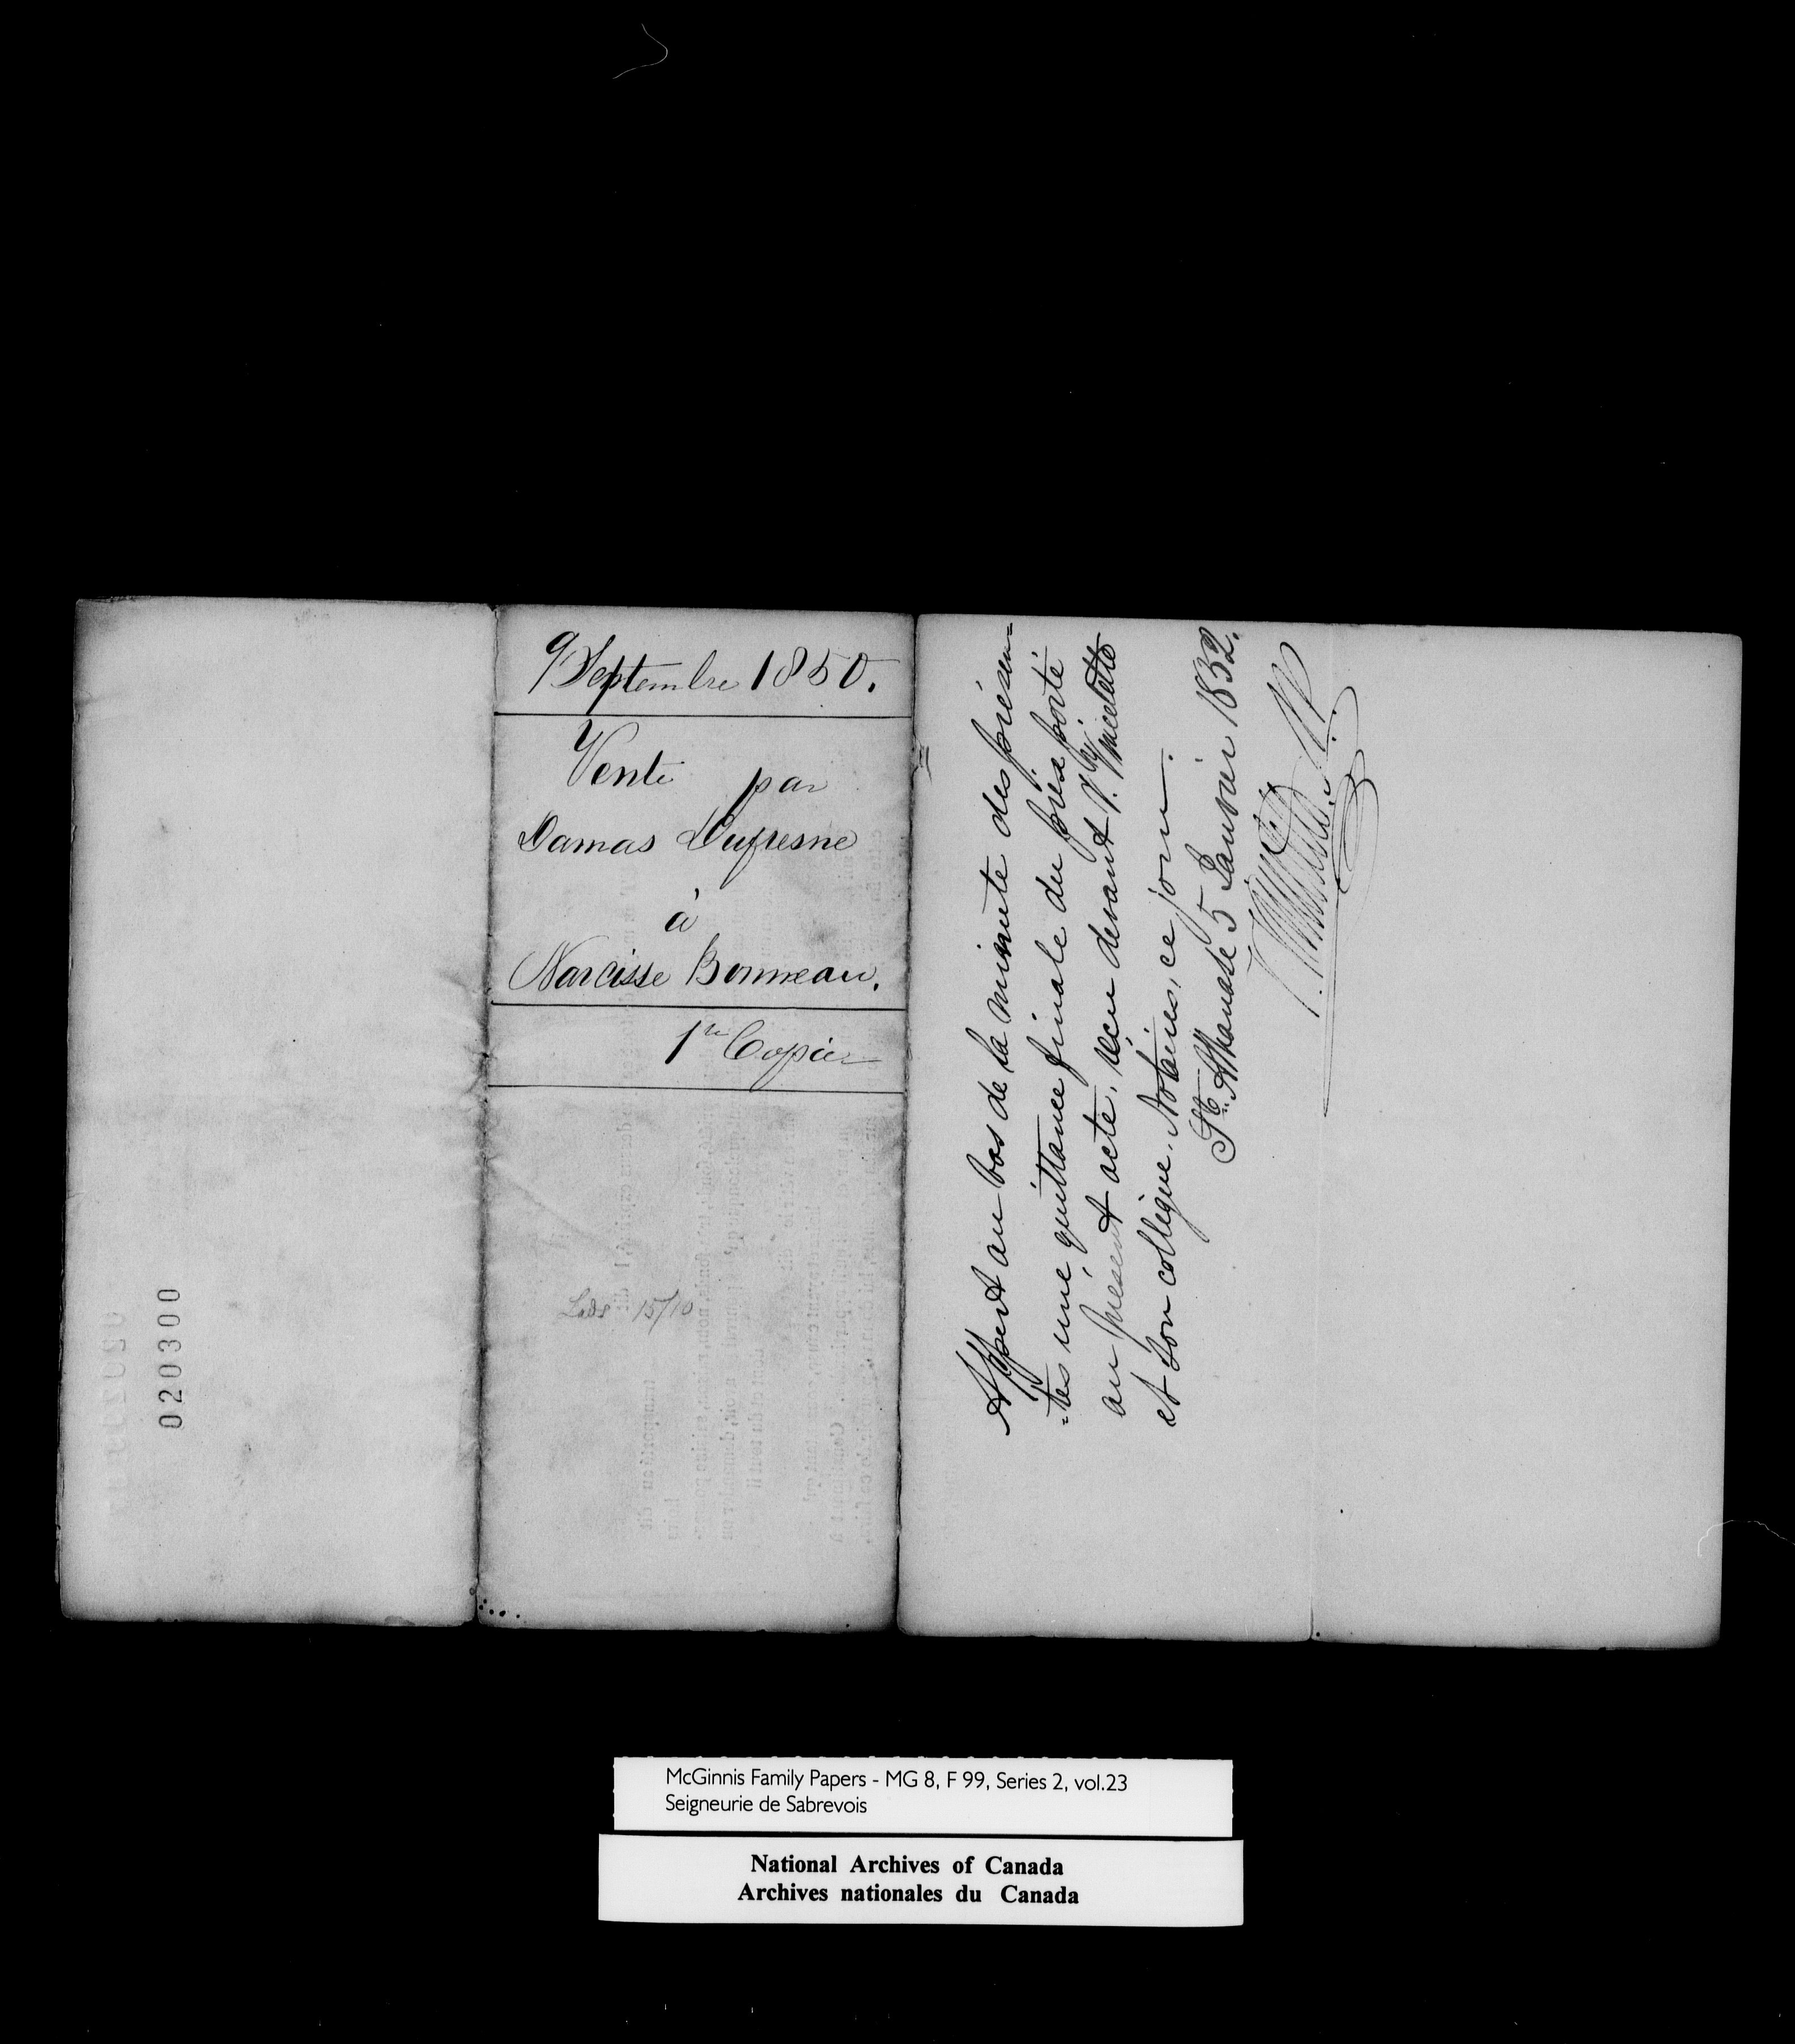 020300
9 Septembre 1850.
Vente par
Damas Dufresne
à
Narcisse Bonneau.
1re Copie
Lods 15/10
Appert au bas de la minute des présen=
=tes une quittance finale du prix porté
au présent acte, reçu devant V. Vincelette
et son collègue, Notaires, ce jour.
St. Athanase 5 Janvier 1852.
N.P.
McGinnis Family Papers - MG 8, F 99, Series 2, vol.23
Seigneurie de Sabrevois
National Archives of Canada
Archives nationales du Canada